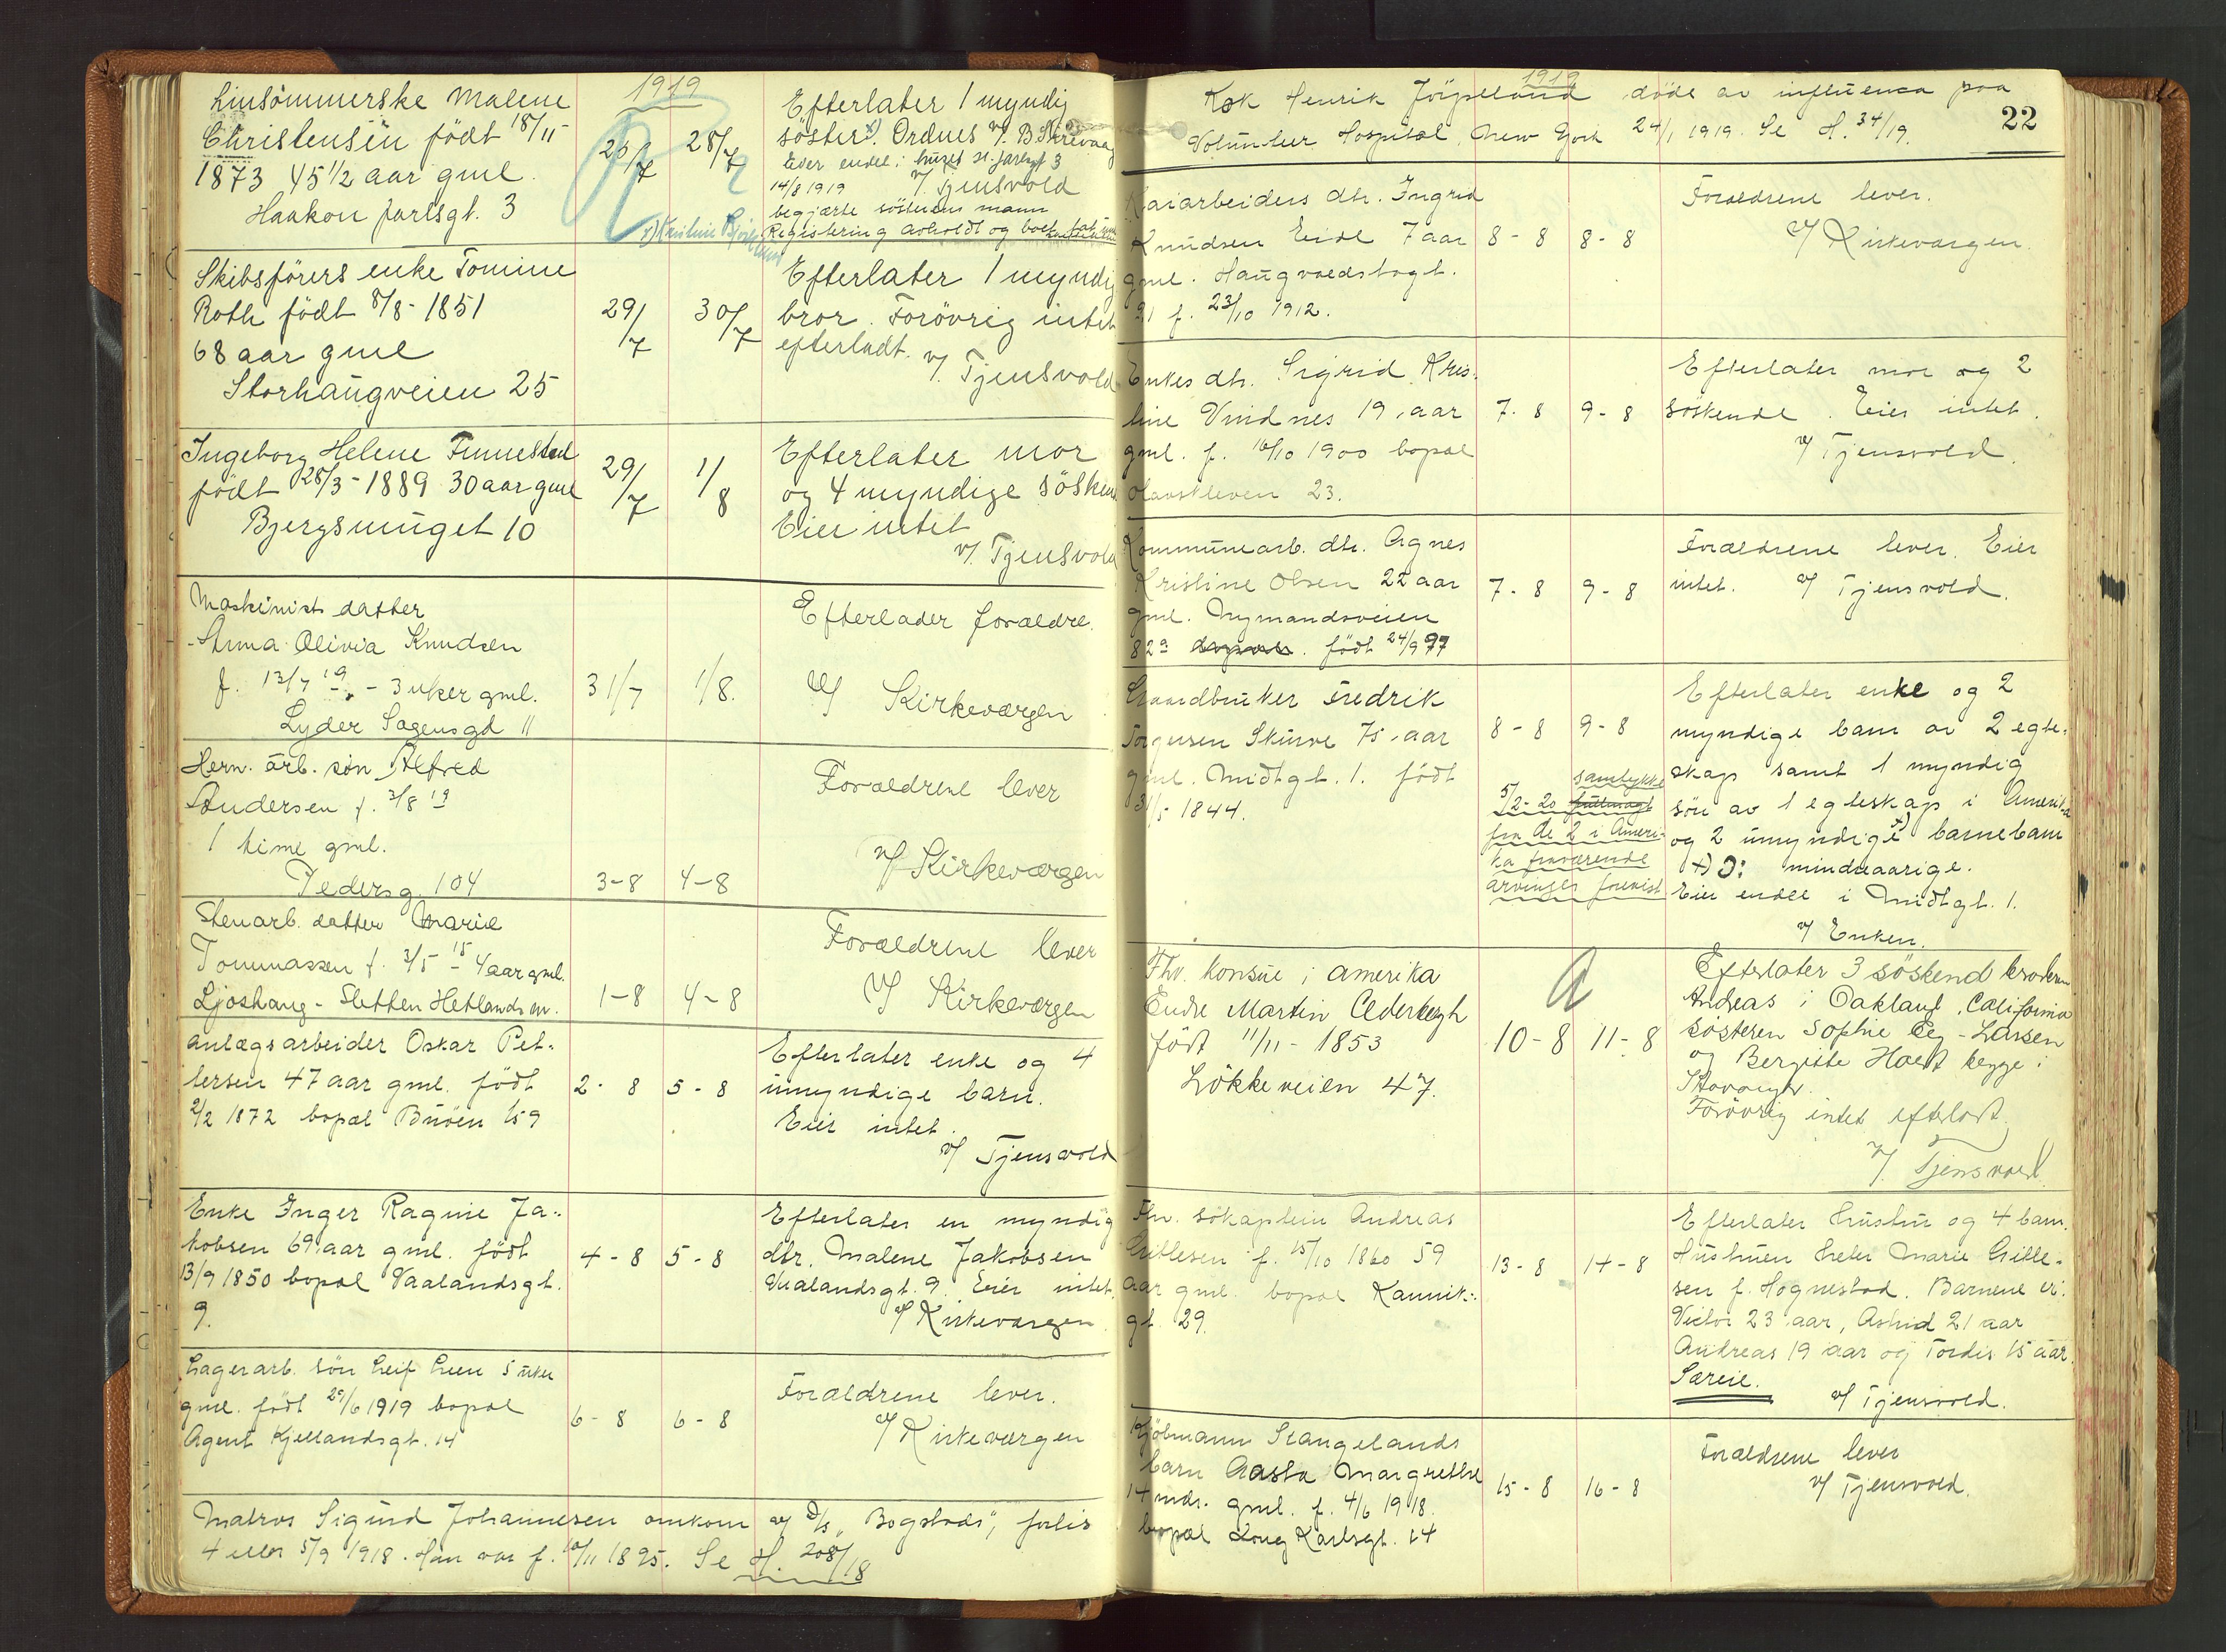 1919
Linsömmerske Malene
Christensen födt 18/11
1873 45 1/2 aar gml.
Haakon Jarlsgt. 3
25/7 28/7
Efterlater 1 myndig
söster x). Ordnes v/. B.
Eier endel i huset H. Jarlsgt 3
14/8 1919 v/. Tjensvold
begjærte sösterens mann
Registering avholdt og boet
x) Kristine
Skibsförers enke Tomine
Roth födt 8/8 - 1851
68 aar gml
Storhaugveien 25
29/7 30/7
Efterlater 1 myndig
bror. Forövrig intet
efterladt.
v/. Tjensvold
Ingeborg Helene Finnestad
födt 28/3 - 1889 30 aar gml
Bjergsmuget 10
29/7 1/8
Efterlater mor
og 4 myndige sösken
Eier intet
v/. Tjensvold
Maskinists datter
Anna Olivia Knudsen
f. 13/7 19 - 3 uker gml.
Lyder Sagensgd 11
31/7 1/8.
Efterlader forældre.
v/ Kirkeværgen
Herm. arb. sön Alfred
Andersen f. 3/8 19
1 time gml.
Pedersg. 104
3-8 4-8
Forældrene lever
v/ Kirkeværgen
Stenarb. datter Marie
Tommassen f. 3/5 - 15 4 aar gml.
Ljoshaug - Sletten Hetlands m.
1-8 4-8
Forældrene lever
v/ Kirkeværgen
Anlægsarbeider Oskar Pet-
tersen 47 aar gml. födt
2/2 1872 bopæl Buöen 159
2 - 8 5 - 8
Efterlater enke og 4
umyndige barn.
Eier intet.
v/ Tjensvold
Enke Inger Ragnie Ja-
kobsen 69 aar gml. födt
13/9 1850 bopæl Vaalandsgt.
9.
4 - 8 5 - 8
Efterlater en myndig
dtr. Malene Jakobsen
Vaalandsgt. 9. Eier intet.
v/ Kirkeværgen
Lagerarb. sön Leif Lien 5 uker
gml. födt 29/6 1919 bopæl
Agent Kjellandsgt. 14
6 - 8 6 - 8
Forældrene lever.
v/ Kirkeværgen
Matros Sigurd Johannesen omkom av D/S "Bogstads", forlis
4 eller 5/9 1918. Han var f. 10/11 1895. Se H. 208/18
1919
22
Kok Henrik Jörpeland döde av influenca paa
Volunteer Hospital, New York 24/1 1919. Se H. 34/19.
Kaiarbeiders dtr. Ingrid
Knudsen Eide 7 aar
gml. Haugvaldstagt.
21 f. 23/10 1912.
8 - 8 8 - 8
Forældrene lever.
v/ Kirkeværgen.
Enkes dtr. Sigrid Kris-
tine Vindnes 19 aar
gml. f. 16/10 1900 bopæl
Olavskleven 23.
7 - 8 9 - 8
Efterlater mor og 2
söskende. Eier intet.
v/ Tjensvold.
Kommunearb. dtr. Agnes
Kristine Olsen 22 aar
gml. Nymandsveien
82a födt 24/9 97
7 - 8 9 - 8
Forældrene lever. Eier
intet. v/ Tjensvold.
Gaardbruker Fredrik
Torgersen Skurve 75 aar
gml. Midtgt. 1. födt
31/5 1844.
8 - 8 9 - 8
samtykke
5/2-20 fuldmagt
fra de 2 i Ameri-
ka fraværende
arvinger forevist
Efterlater enke og 2
myndige barn av 2 egte-
skap samt 1 myndig
sön av 1 egteskap i Amerika
og 2 umyndige x) barnebarn
x) ɔ: mindreaarige.
Eier endel i Midtgt. 1.
v/ Enken.
Fhv. konsul i Amerika
Endre Martin Cederbergh
födt 11/11 - 1853
Lökkeveien 47.
10 - 8 11 - 8
Efterlater 3 söskend broderen
Andreas i Oakland, California
sösteren Sophie Eeg - Larsen
og Bergitte Hoest begge i
Stavanger.
Forövrig intet efterladt.
v/. Tjensvold
Fhv. sökaptein Andreas
Gillesen f. 15/10 1860 59
aar gml. bopæl Kannik-
gt. 29.
13 - 8 14 - 8
Efterlater hustru og 4 barn.
Hustruen heter Marie Gille-
sen f. Hognestad. Barnene er:
Victor 23 aar, Astrid 21 aar
Andreas 19 aar og Tordis 15 aar.
Særeie.
v/ Tjensvold.
Kjöbmann Stangelands
barn Aasta Margrethe
14 mdr. gml. f. 4/6 1918.
bopæl Kong Karlsgt. 14
15 - 8 16 - 8
Forældrene lever
v/ Tjensvold.